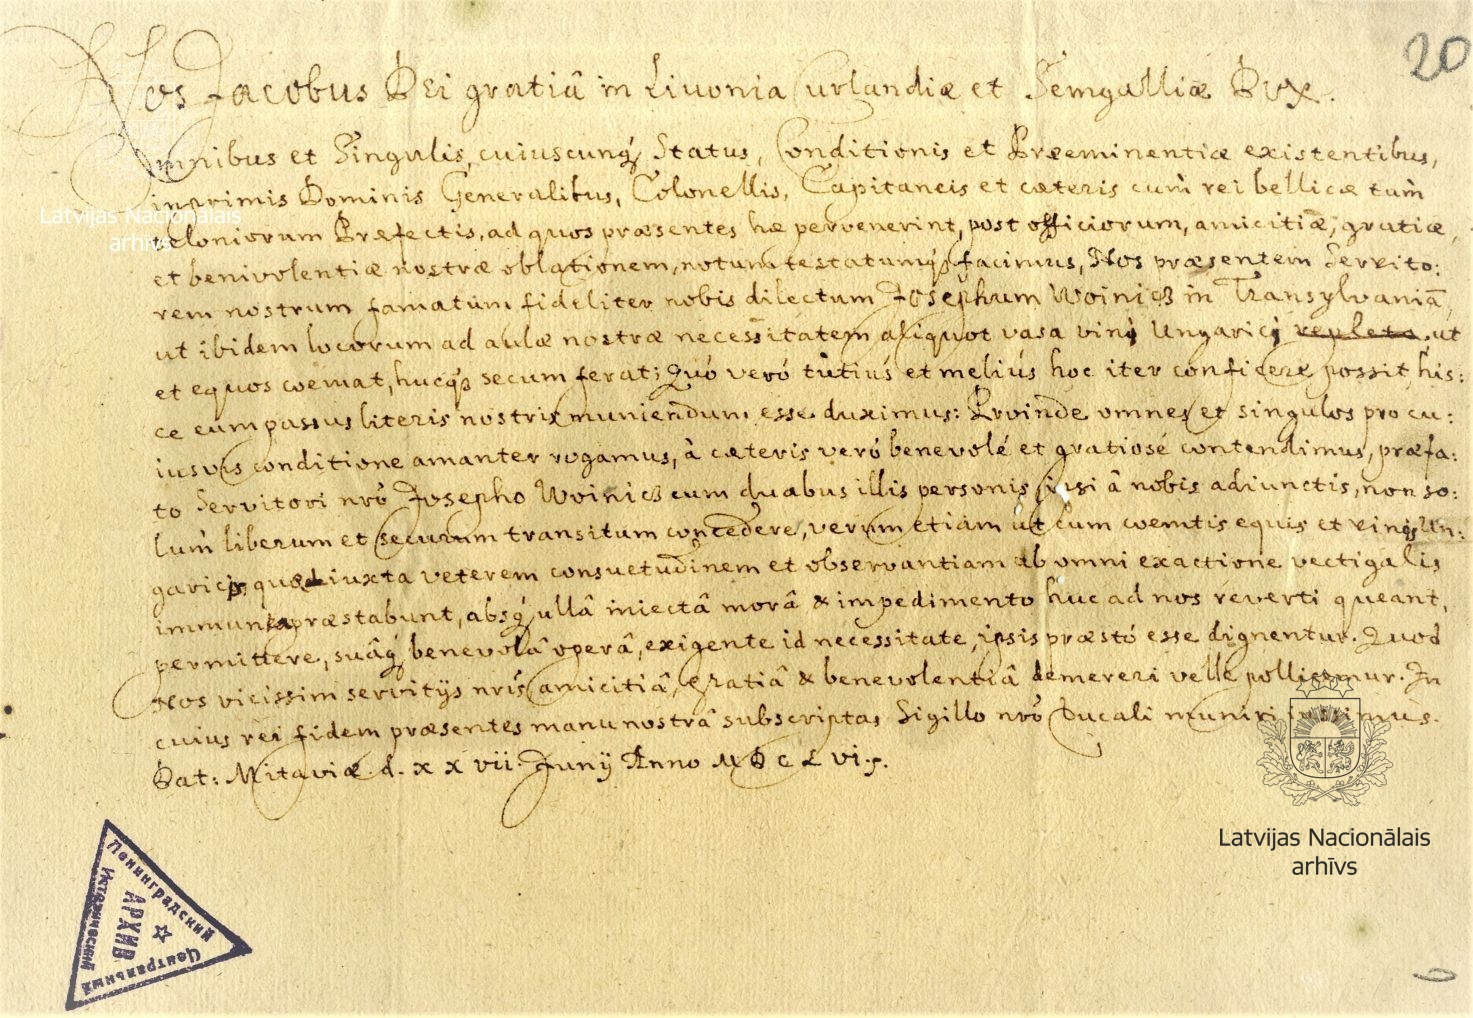 20
Nos Jacobus Dei gratiâ in Livonia Curlandiæ et Semgalliæ Dux.
Omnibus et Singulis, cuiuscunq; Status, Conditionis et Præeminentiæ existentibus,
inprimis Dominis Generalibus, Colonellis, Capitaneis et cæteris cum̀ rei bellicæ tum̀
teloniorum Præfectis, ad quos præsentes hæ pervenerint, post officiorum, amicitiæ, gratiæ,
et benivolentiæ nostræ oblationem, notum testatumq; facimus, Nos præsentem Servito:
rem nostrum famatum fideliter nobis dilectum Josephum in Transylvaniâ,
ut ibidem locorum ad aulæ nostræ necessitatem aliquot vasa vinj Ungaricj repleta, ut
et equos coemat, hucq; secum ferat; Quó veró tùtiús et meliús hoc iter conficere possit, his:
ce eum passus literis nostris muniendum esse duximus: Proinde omnes et singulos pro cu:
iusvis conditione amanter rogamus, à cæteris veró benevolé et gratiosé contendimus, præfa:
to Servitori nrò Josepho cum duabus illis personis ipsi â nobis adiunctis, non so:
lum̀ liberum et securum transitum concedere, verum etiam ut cum coemtis equis et vinis Un:
garicis, quæ iuxta veterem consuetudinem et observantiam ab omni exactione vectigalis
præstabunt, absq; ullâ iniectâ morâ & impedimento huc ad nos reverti queant,
permittere, suâq; benevolâ operâ, exigente id necessitate, ipsis præstó esse dignentur. Quod
Nos vicissim servitijs nrìs amicitiâ, gratiâ & benevolentiâ demereri velle pollicemur. In
cuius rei fidem præsentes manu nostrâ subscriptas Sigillo nrò Ducali muniri iussimus.
Dat: Mitaviæ d. xxvii. Junij Anno MDCLVI.
Latvijas Nacionālais
arhīvs
Latvijas Nacionālais
arhīvs
Ленинградский
Центральный
Исторический
АРХИВ